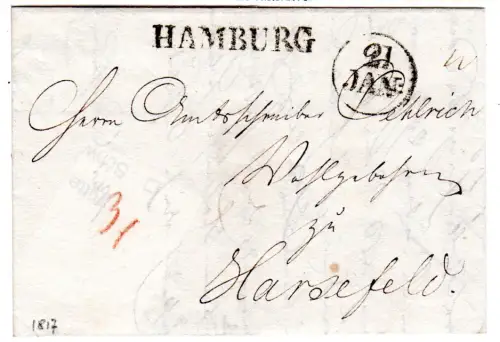 HAMBURG
21
JAN.
Herrn Amtsschreiber Oehlrich
Wohlgebohrn
zu
Harsefeld.
3/
1817